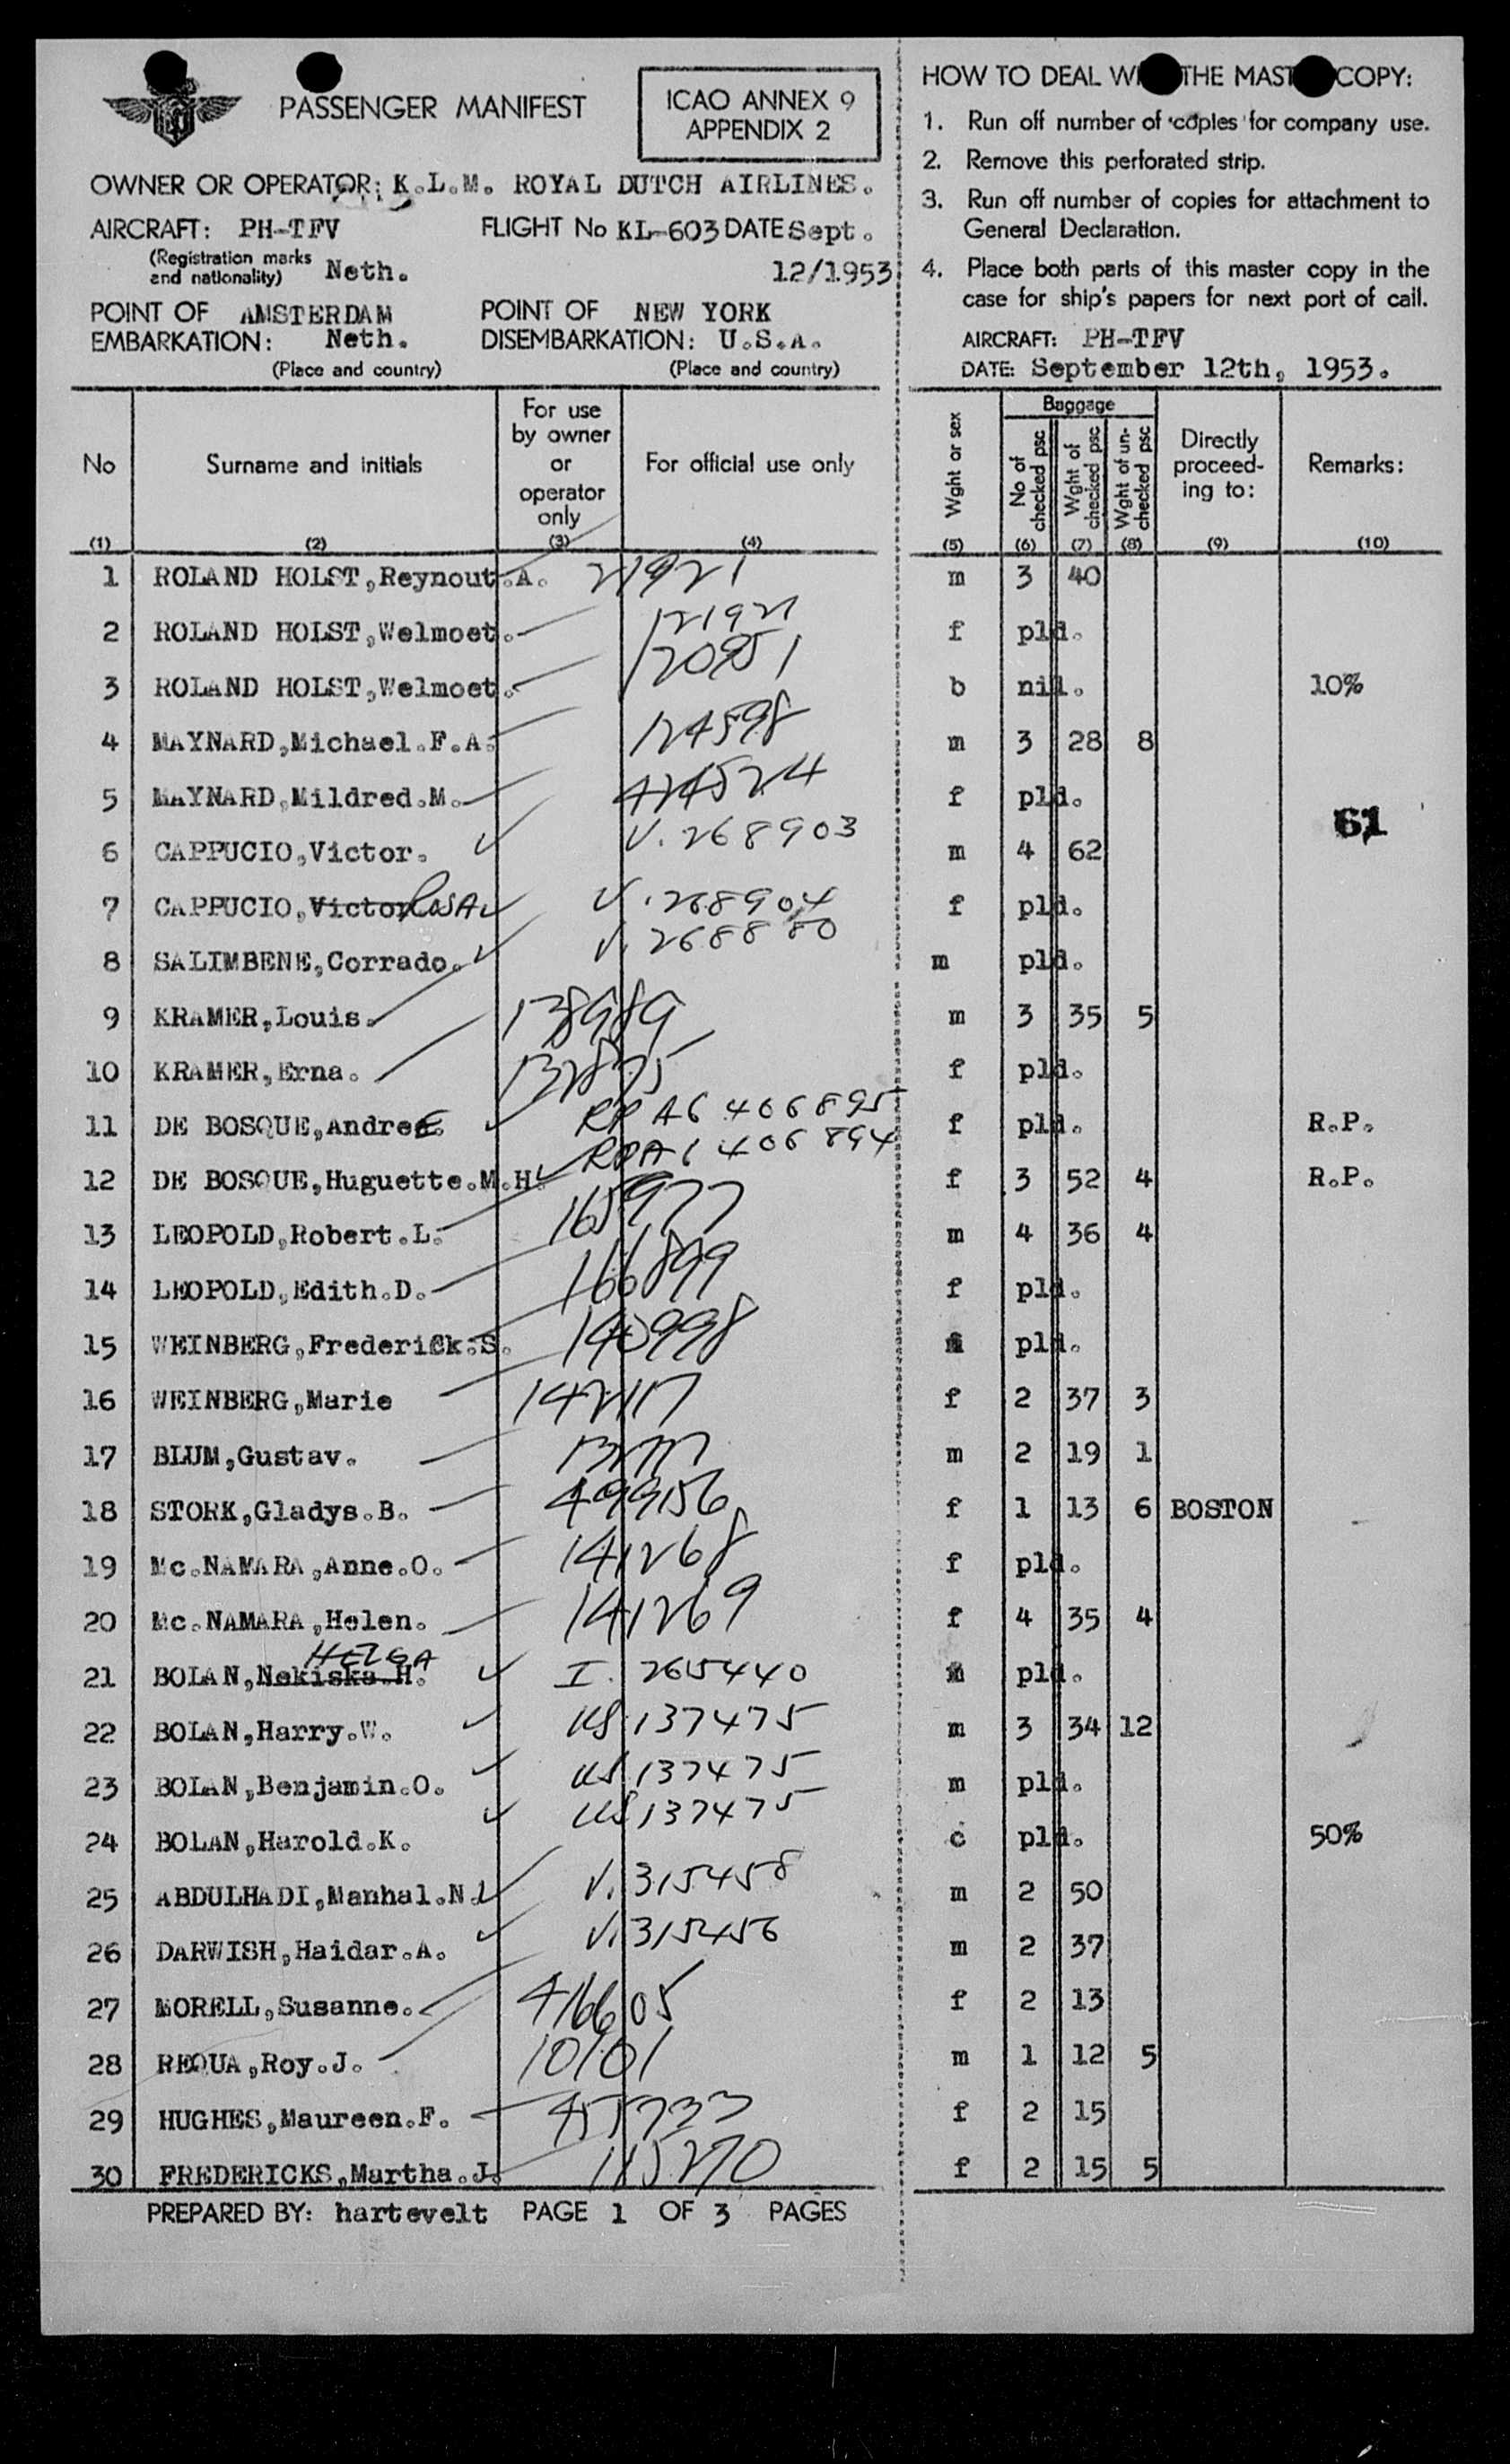 PASSENGER MANIFEST
ICAO ANNEX 9
APPENDIX 2
OWNER OR OPERATOR: K.L.M. ROYAL DUTCH AIRLINES.
AIRCRAFT: PH-TFV FLIGHT No KL-603 DATE Sept.
(Registration marks and nationality) Neth. 12/1953
POINT OF EMBARKATION: AMSTERDAM Neth. POINT OF DISEMBARKATION: NEW YORK U.S.A.
(Place and country) (Place and country)
HOW TO DEAL THE COPY:
1. Run off number of copies for company use.
2. Remove this perforated strip.
3. Run off number of copies for attachment to
General Declaration.
4. Place both parts of this master copy in the
case for ship's papers for next port of call.
AIRCRAFT: PH-TFV
DATE: September 12th, 1953.
No Surname and initials For use by owner or operator only For official use only Wght or sex Baggage No of checked psc Wght of checked psc Wght of un-checked psc Directly proceed-ing to: Remarks:
(1) (2) (3) (4) (5) (6) (7) (8) (9) (10)
1 ROLAND HOLST,Reynout.A. 21921 m 3 40
2 ROLAND HOLST,Welmoet. 121921 f pld.
3 ROLAND HOLST,Welmoet. 120951 b nil. 10%
4 MAYNARD,Michael.F.A. 124598 m 3 28 8
5 MAYNARD,Mildred.M. 424524 f pld.
61
6 CAPPUCIO,Victor. V. 268903 m 4 62
7 CAPPUCIO,Victor ROSA V. 268904 f pld.
8 SALIMBENE,Corrado. V. 268880 m pld.
9 KRAMER,Louis. 138989 m 3 35 5
10 KRAMER,Erna. 132875 f pld.
11 DE BOSQUE,Andree. RP A6 406895 f pld. R.P.
12 DE BOSQUE,Huguette.M.H. RP A6 406894 f 3 52 4 R.P.
13 LEOPOLD,Robert.L. 165977 m 4 36 4
14 LEOPOLD,Edith.D. 166899 f pld.
15 WEINBERG,Frederick.S. 140998 m pld.
16 WEINBERG,Marie 142117 f 2 37 3
17 BLUM,Gustav. m 2 19 1
18 STORK,Gladys.B. 499156 f 1 13 6 BOSTON
19 Mc.NAMARA,Anne.O. 141268 f pld.
20 Mc.NAMARA,Helen. 141269 f 4 35 4
HELGA
21 BOLAN,Nekiska.H. I. 2615440 pld.
22 BOLAN,Harry.W. US 137475 m 3 34 12
23 BOLAN,Benjamin.O. US 137475 m pld.
24 BOLAN,Harold.K. US 137475 c pld. 50%
25 ABDULHADI,Manhal.N. V. 315458 m 2 50
26 DARWISH,Haidar.A. V. 315456 m 2 37
27 MORELL,Susanne. 416605 f 2 13
28 REQUA,Roy.J. 10101 m 1 12 5
29 HUGHES,Maureen.F. 455733 f 2 15
30 FREDERICKS,Martha.J. 115270 f 2 15 5
PREPARED BY: hartevelt PAGE 1 OF 3 PAGES